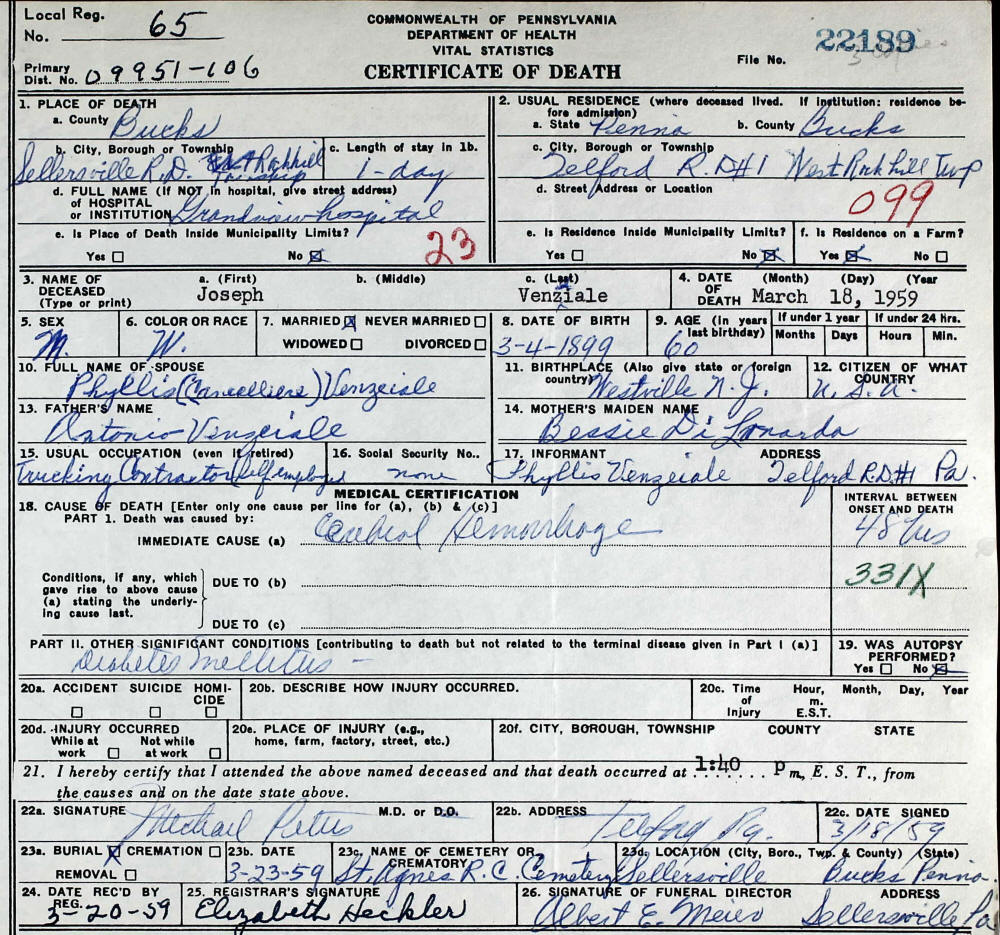 Local Reg.
No. 65
COMMONWEALTH OF PENNSYLVANIA
DEPARTMENT OF HEALTH
VITAL STATISTICS
CERTIFICATE OF DEATH
File No. 22189
Primary
Dist. No. 09951-106
1. PLACE OF DEATH
a. County Bucks
2. USUAL RESIDENCE (where deceased lived. If institution: residence be-
fore admission)
a. State Penna b. County Bucks
b. City, Borough or Township
Sellersville R.D. West Rockhill
Township
c. Length of stay in 1b.
1-day
c. City, Borough or Township
Telford R.D#1 West Rockhill Twp
d. FULL NAME (if NOT in hospital, give street address)
of HOSPITAL
or INSTITUTION Grandview hospital
d. Street Address or Location
099
e. Is Place of Death Inside Municipality Limits?
Yes No
23
e. Is Residence Inside Municipality Limits?
Yes No
f. Is Residence on a Farm?
Yes No
3. NAME OF
DECEASED
(Type or print)
a. (First)
Joseph
b. (Middle)
c. (Last)
Venziale
4. DATE
OF
DEATH
(Month) (Day) (Year
March 18, 1959
5. SEX
M.
6. COLOR OR RACE
W.
7. MARRIED NEVER MARRIED
WIDOWED DIVORCED
8. DATE OF BIRTH
3-4-1899
9. AGE (in years
last birthday)
60
If under 1 year
Months Days
If under 24 Hrs.
Hours Min.
10. FULL NAME OF SPOUSE
Phyllis (Cancelliere) Venzeiale
11. BIRTHPLACE (Also give state or foreign
country)
Westville N.J.
12. CITIZEN OF WHAT
COUNTRY
U.S.A.
13. FATHER'S NAME
Antonio Venzeiale
14. MOTHER'S MAIDEN NAME
Bessie Di Lonardo
15. USUAL OCCUPATION (even if retired)
Trucking Contractor (self employed
16. Social Security No..
none
17. INFORMANT ADDRESS
Phyllis Venzeiale Telford R.D.#1 Pa.
MEDICAL CERTIFICATION
18. CAUSE OF DEATH [Enter only one cause per line for (a), (b) & (c)]
PART 1. Death was caused by:
IMMEDIATE CAUSE (a) Cerebral Hemorrhage
INTERVAL BETWEEN
ONSET AND DEATH
48 hrs
331X
Conditions, if any, which
gave rise to above cause
(a) stating the underly-
ing cause last.
DUE TO (b)
DUE TO (c)
PART II. OTHER SIGNIFICANT CONDITIONS [contributing to death but not related to the terminal disease given in Part I (a)]
Diabetes Mellitus -
19. WAS AUTOPSY
PERFORMED?
Yes No
20a. ACCIDENT SUICIDE HOMI-
CIDE
20b. DESCRIBE HOW INJURY OCCURRED.
20c. Time
of
Injury
Hour, Month, Day, Year
m.
E.S.T.
20d. INJURY OCCURRED
While at
work
Not while
at work
20e. PLACE OF INJURY (e.g.,
home, farm, factory, street, etc.)
20f. CITY, BOROUGH, TOWNSHIP COUNTY STATE
21. I hereby certify that I attended the above named deceased and that death occurred at 1:40 P m., E. S. T., from
the causes and on the date state above.
22a. SIGNATURE M.D. or D.O.
Michael Peters
22b. ADDRESS
Telford Pa.
22c. DATE SIGNED
3/18/59
23a. BURIAL CREMATION
REMOVAL
23b. DATE
3-23-59
23c. NAME OF CEMETERY OR
CREMATORY
St. Agnes R.C. Cemetery
23d. LOCATION (City, Boro., Twp. & County) (State)
Sellersville Bucks Penna.
24. DATE REC'D BY
REG.
3-20-59
25. REGISTRAR'S SIGNATURE
Elizabeth Heckler
26. SIGNATURE OF FUNERAL DIRECTOR ADDRESS
Albert E. Meier Sellersville Pa